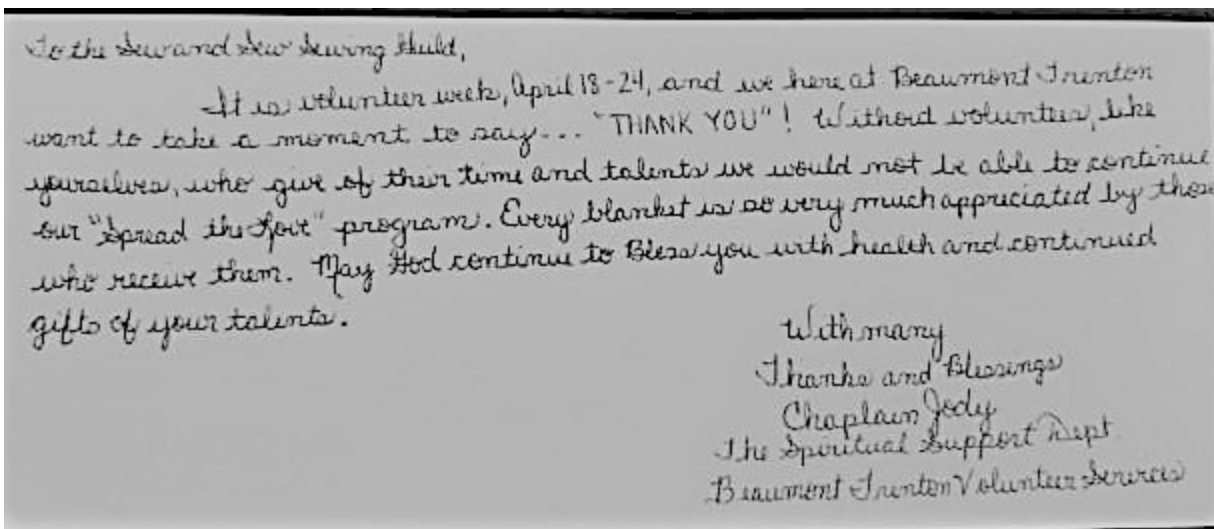 To the Sew and Sew Sewing Guild,
It is volunteer week, April 18-24, and we here at Beaumont Trenton
want to take a moment to say... "THANK YOU"! Without volunteers, like
yourselves, who give of their time and talents we would not be able to continue
our "Spread the Love" program. Every blanket is so very much appreciated by those
who receive them. May God continue to Bless you with health and continued
gifts of your talents.
With many
Thanks and Blessings
Chaplain Jody
The Spiritual Support Dept
Beaumont Trenton Volunteer Services